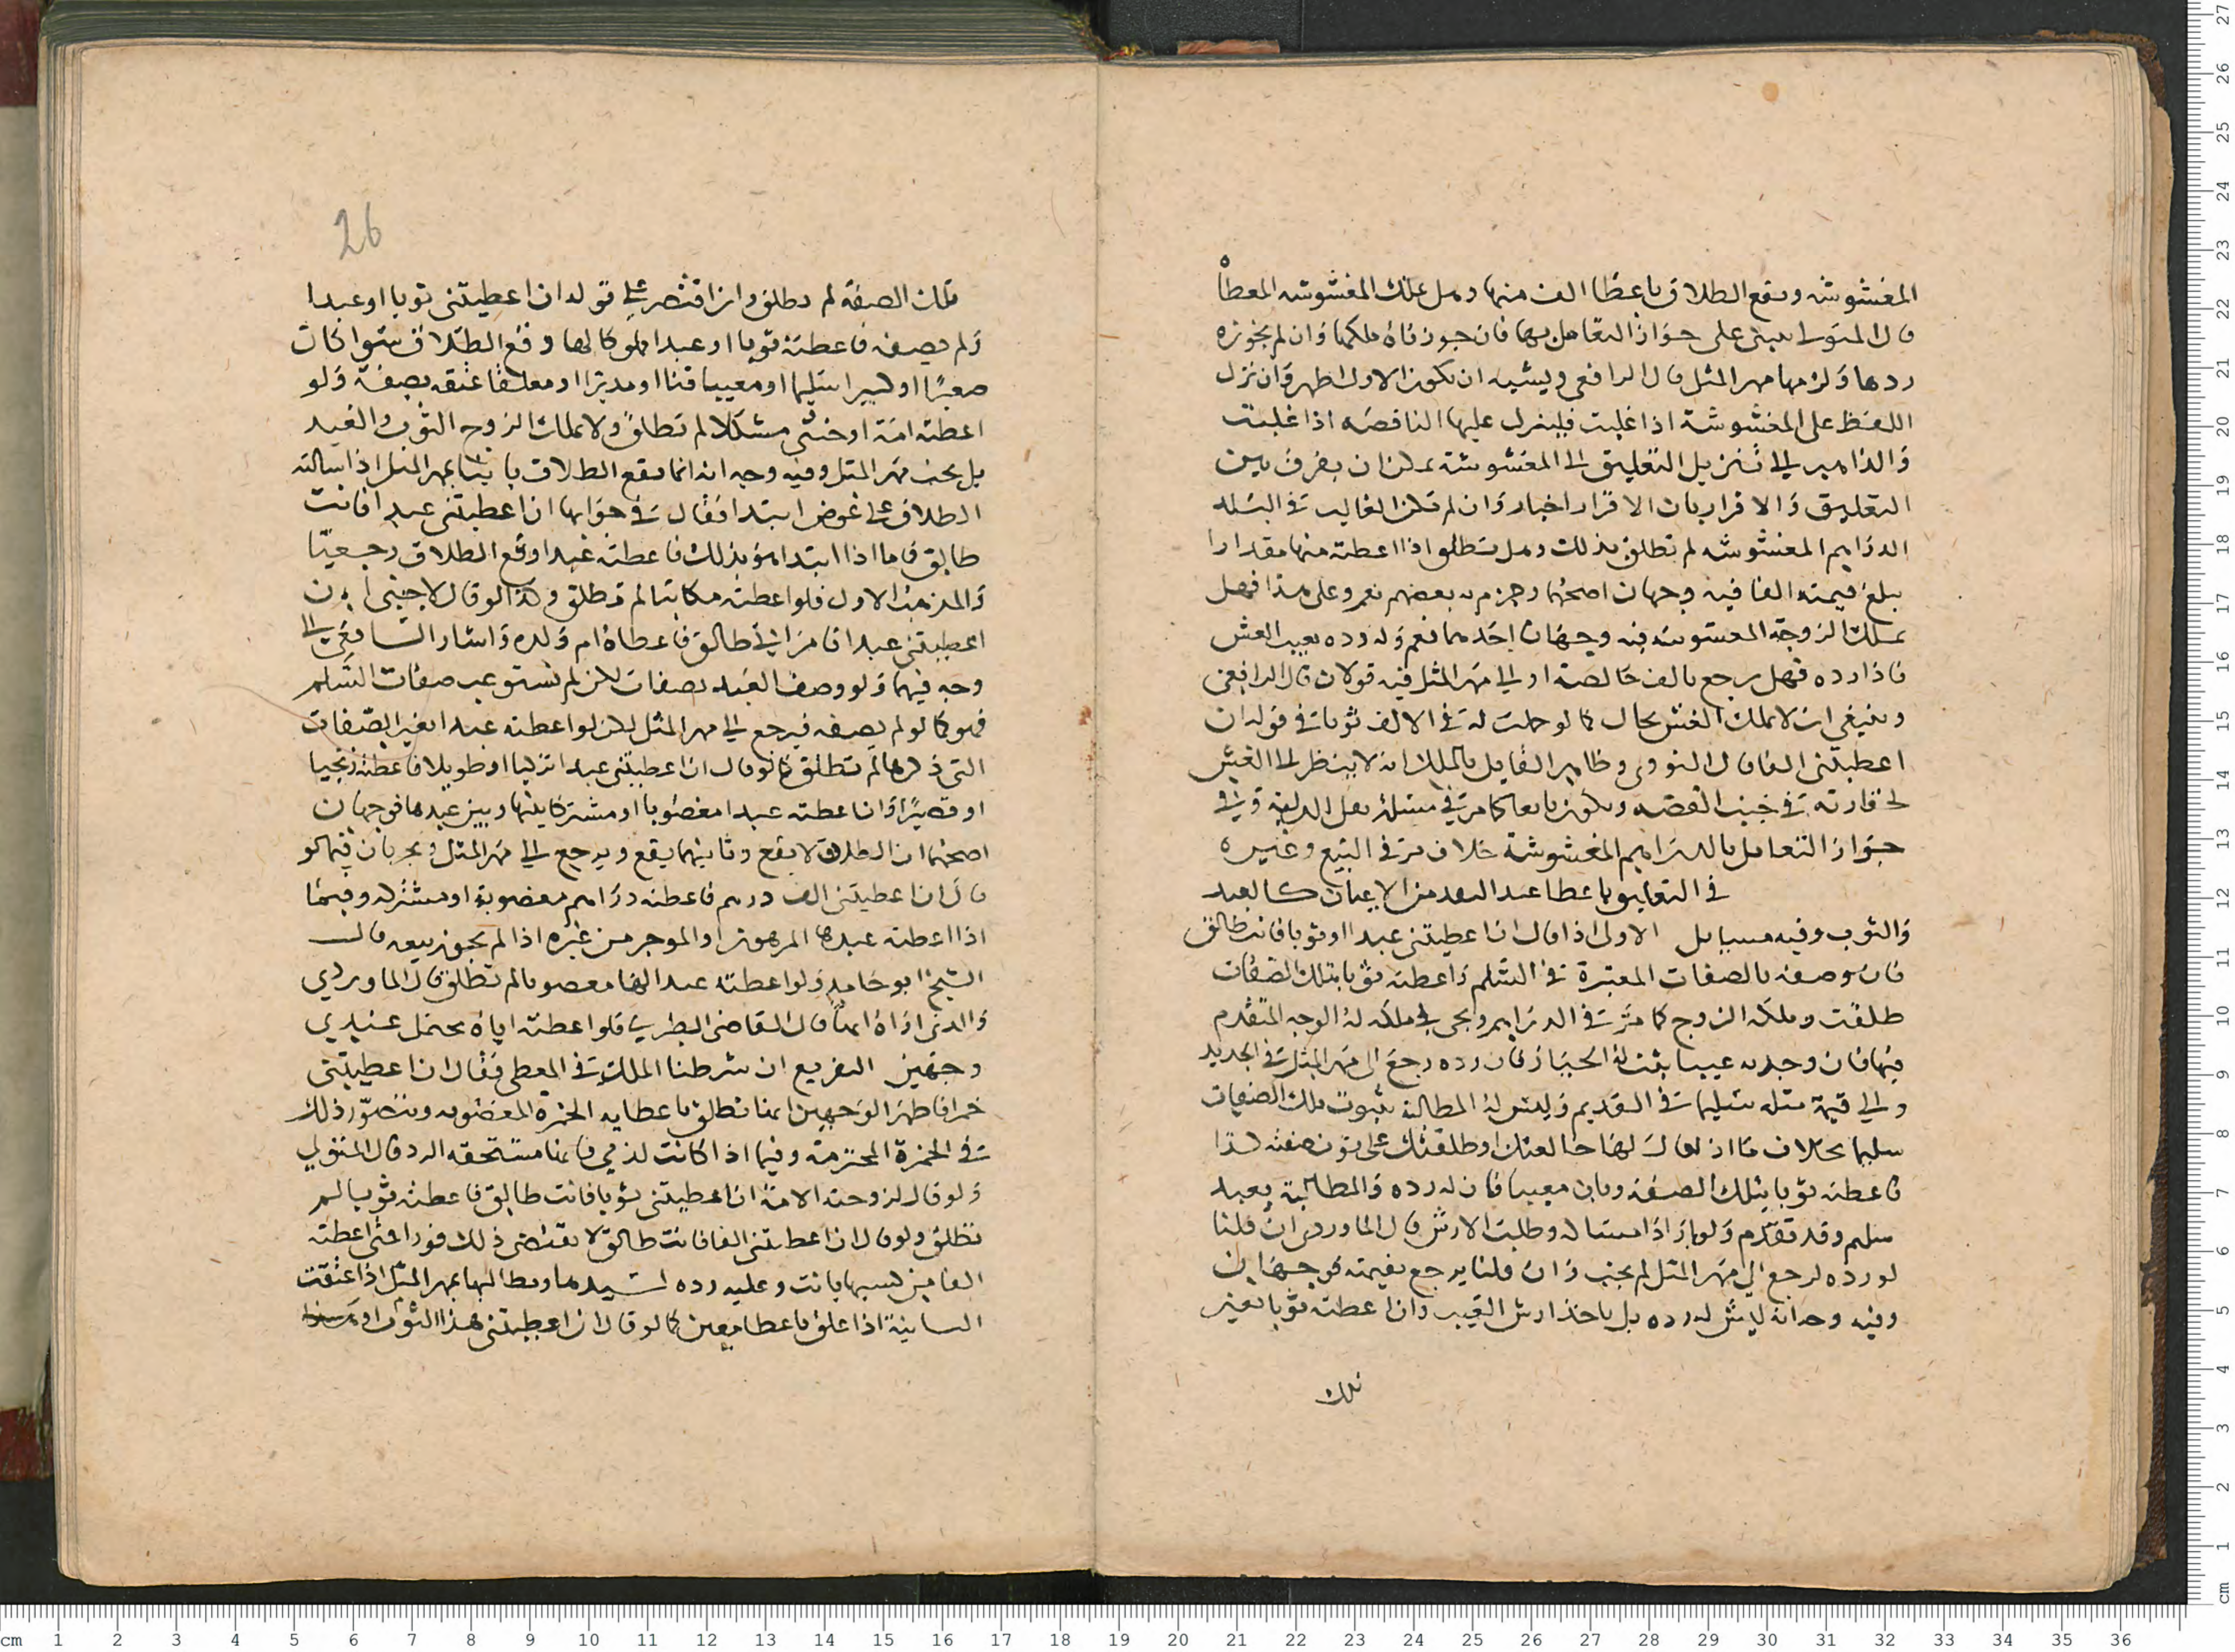 المغشوشه ويقع الطلاق باعطا الف منها وهل تملك المغشوشه المعطاه
قال المتولي يبنى على جواز التعامل بها فان جوزناه ملكها وان لم نجوزه
ردها ولزمها مهر المثل قال الرافعي ويشبه ان يكون الاول اظهر وان نزل
اللفظ على المغشوشة اذا غلبت فلينزل عليها الناقصه اذا غلبت
والذاهب الى تنزيل التعليق الى المغشوشة يمكن ان يفرق بين
التعليق والاقرار بان الاقرار اخبار وان لم تكن الغالب في البلد
الدراهم المغشوشه لم تطلق بذلك وهل تطلق اذا اعطته منها مقدارا
يبلغ قيمته الفا فيه وجهان اصحهما وجزم به بعضهم نعم وعلى هذا فهل
تملك الزوجة المغشوشه فيه وجهان احدهما نعم وله رده بعيب الغش
فاذا رده فهل يرجع بالف خالصة او الى مهر المثل فيه قولان قال الرافعي
وينبغي ان لا تملك الغش بحال كما لو حلت له في الالف ثوبا في قوله ان
اعطيتني الفا قال النووي وظاهر القايل بالملك انه لا ينظر الى الغش
لحقارته في جنب الفضه ويكون تابعا كما مر في مسئلة نعل الدابة وفي
جواز التعامل بالدراهم المغشوشة خلاف مر في البيع وغيره
في التعليق باعطا غير النقد من الاعيان كالعبد
والثوب وفيه مسايل الاولى اذا قال ان اعطيتني عبدا او ثوبا فانت طالق
فان وصفه بالصفات المعتبرة في السلم واعطته ثوبا بتلك الصفات
طلقت وملكه الزوج كما مر في الدراهم ويجي في ملكه له الوجه المتقدم
فيها فان وجد به عيبا يثبت له الخيار فان رده رجع الى مهر المثل في الجديد
والى قيمة مثله سليما في القديم وليس له المطالبة بثوب بتلك الصفات
سليما بخلاف ما اذا قال لها خالعتك او طلقتك على ثوب صفته كذا
فاعطته ثوبا بتلك الصفة وبان معيبا فان له رده والمطالبة بعبد
سليم وقد تقدم ولو اراد امساكه وطلب الارش قال الماوردي ان قلنا
لو رده لرجع الى مهر المثل لم يجب وان قلنا يرجع بقيمته فوجهان
وفيه وجه انه ليس له رده بل ياخذ ارش العيب وان اعطته ثوبا بغير
تلك
تلك الصفة لم تطلق وان اقتصر على قوله ان اعطيتني ثوبا او عبدا
ولم يصفه فاعطته ثوبا او عبدا مملوكا لها وقع الطلاق سوا كان
صغيرا او كبيرا سليما او معيبا قنا او مدبرا او معلقا عتقه بصفة ولو
اعطته امة او خنثى مشكلا لم تطلق ولا يملك الزوج الثوب والعبد
بل يجب مهر المثل وفيه وجه انه انما يقع الطلاق باينا بمهر المثل اذا سالته
الطلاق على عوض ابتدا فقال في جوابها ان اعطيتني عبدا فانت
طالق فاما اذا ابتدا هو بذلك فاعطته عبدا وقع الطلاق رجعيا
والمذهب الاول فلو اعطته مكاتبا لم تطلق وكذا لو قال لاجنبي ان
اعطيتني عبدا فامراتي طالق فاعطاه ام ولده واشار الشافعي الى
وجه فيهما ولو وصف العبد بصفات لكن لم تستوعب صفات السلم
فهو كما لو لم يصفه فيرجع الى مهر المثل لكن لو اعطته عبدا بغير الصفات
التي ذكرها لم تطلق كما لو قال ان اعطيتني عبدا تركيا او طويلا فاعطته زنجيا
او قصيرا وان اعطته عبدا مغصوبا او مشتركا بينها وبين غيرها فوجهان
اصحهما ان الطلاق لا يقع وثانيهما يقع ويرجع الى مهر المثل ويجريان فيما لو
قال ان اعطيتني الف درهم فاعطته دراهم مغصوبة او مشتركه وفيما
اذا اعطته عبدها المرهون والموجر من غيره اذا لم يجوز بيعه قال
الشيخ ابو حامد ولو اعطته عبدا لها مغصوبا لم تطلق قال الماوردي
والذي اراه انها قال القاضي الطبري فلو اعطته اياه يحتمل عندي
وجهين التفريع ان شرطنا الملك في المعطى فقال ان اعطيتني
خمرا فاظهر الوجهين انها تطلق باعطايه الخمرة المغصوبه ويتصور ذلك
في الخمرة المحترمة وفيما اذا كانت لذمي فانها مستحقه الرد قال المتولي
ولو قال لزوجته الامة ان اعطيتني ثوبا فانت طالق فاعطته ثوبا لم
تطلق ولو قال ان اعطيتني الفا فانت طالق لا يقتضي ذلك فورا فمتى اعطته
الفا من كسبها بانت وعليه رده لسيدها ويطالبها بمهر المثل اذا عتقت
الثانية اذا علق باعطا معين كما لو قال ان اعطيتني هذا الثوب او
26